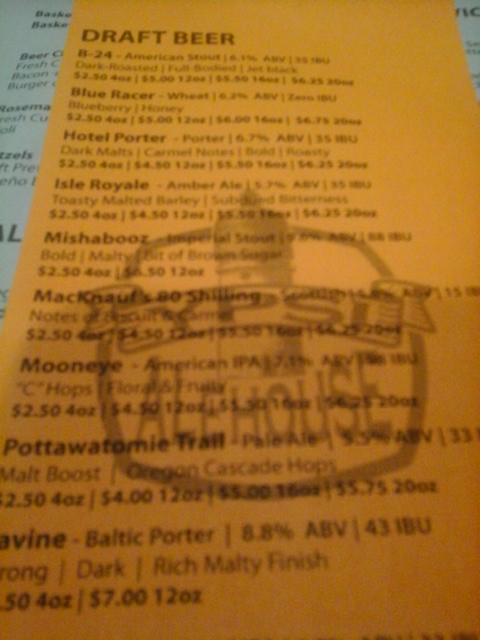 Baske
Baske
DRAFT BEER
B-24 - American Stout | 6.1% ABV | 35 IBU
Dark-Roasted | Full-Bodied | Jet black
$2.50 4oz | $5.00 12oz | $5.50 16oz | $6.25 20oz
Blue Racer - Wheat | 6.2% ABV | Zero IBU
Blueberry | Honey
$2.50 4oz | $5.00 12oz | $6.00 16oz | $6.75 20oz
Hotel Porter - Porter | 6.7% ABV | 35 IBU
Dark Malts | Carmel Notes | Bold | Roasty
$2.50 4oz | $4.50 12oz | $5.50 16oz | $6.25 20oz
Isle Royale - Amber Ale | 5.7% ABV | 35 IBU
Toasty Malted Barley | Subdued Bitterness
$2.50 4oz | $4.50 12oz | $5.50 16oz | $6.25 20oz
Mishabooz - Imperial Stout | 9.6% ABV | 88 IBU
Bold | Malty | Bit of Brown Sugar
$2.50 4oz | $6.50 12oz
MacKnauf's 80 Shilling - Scottish | ABV | 15 IB
Notes of Biscuit & Carmel
$2.50 4oz | $4.50 12oz | $5.50 16oz | $6.25 20oz
Mooneye - American IPA | 7.1% ABV | 98 IBU
"C" Hops | Floral & Fruity
$2.50 4oz | $4.50 12oz | $5.50 16oz | $6.25 20oz
Pottawatomie Trail - Pale Ale | 5.5% ABV | 33 I
Malt Boost | Oregon Cascade Hops
$2.50 4oz | $4.00 12oz | $5.00 16oz | $5.75 20oz
avine - Baltic Porter | 8.8% ABV | 43 IBU
rong | Dark | Rich Malty Finish
.50 4oz | $7.00 12oz
ALEHOUSE
Beer C
Fresh C
Bacon
Burger
Rosema
resh Cu
oll
tzels
ft Pre
eño
AL